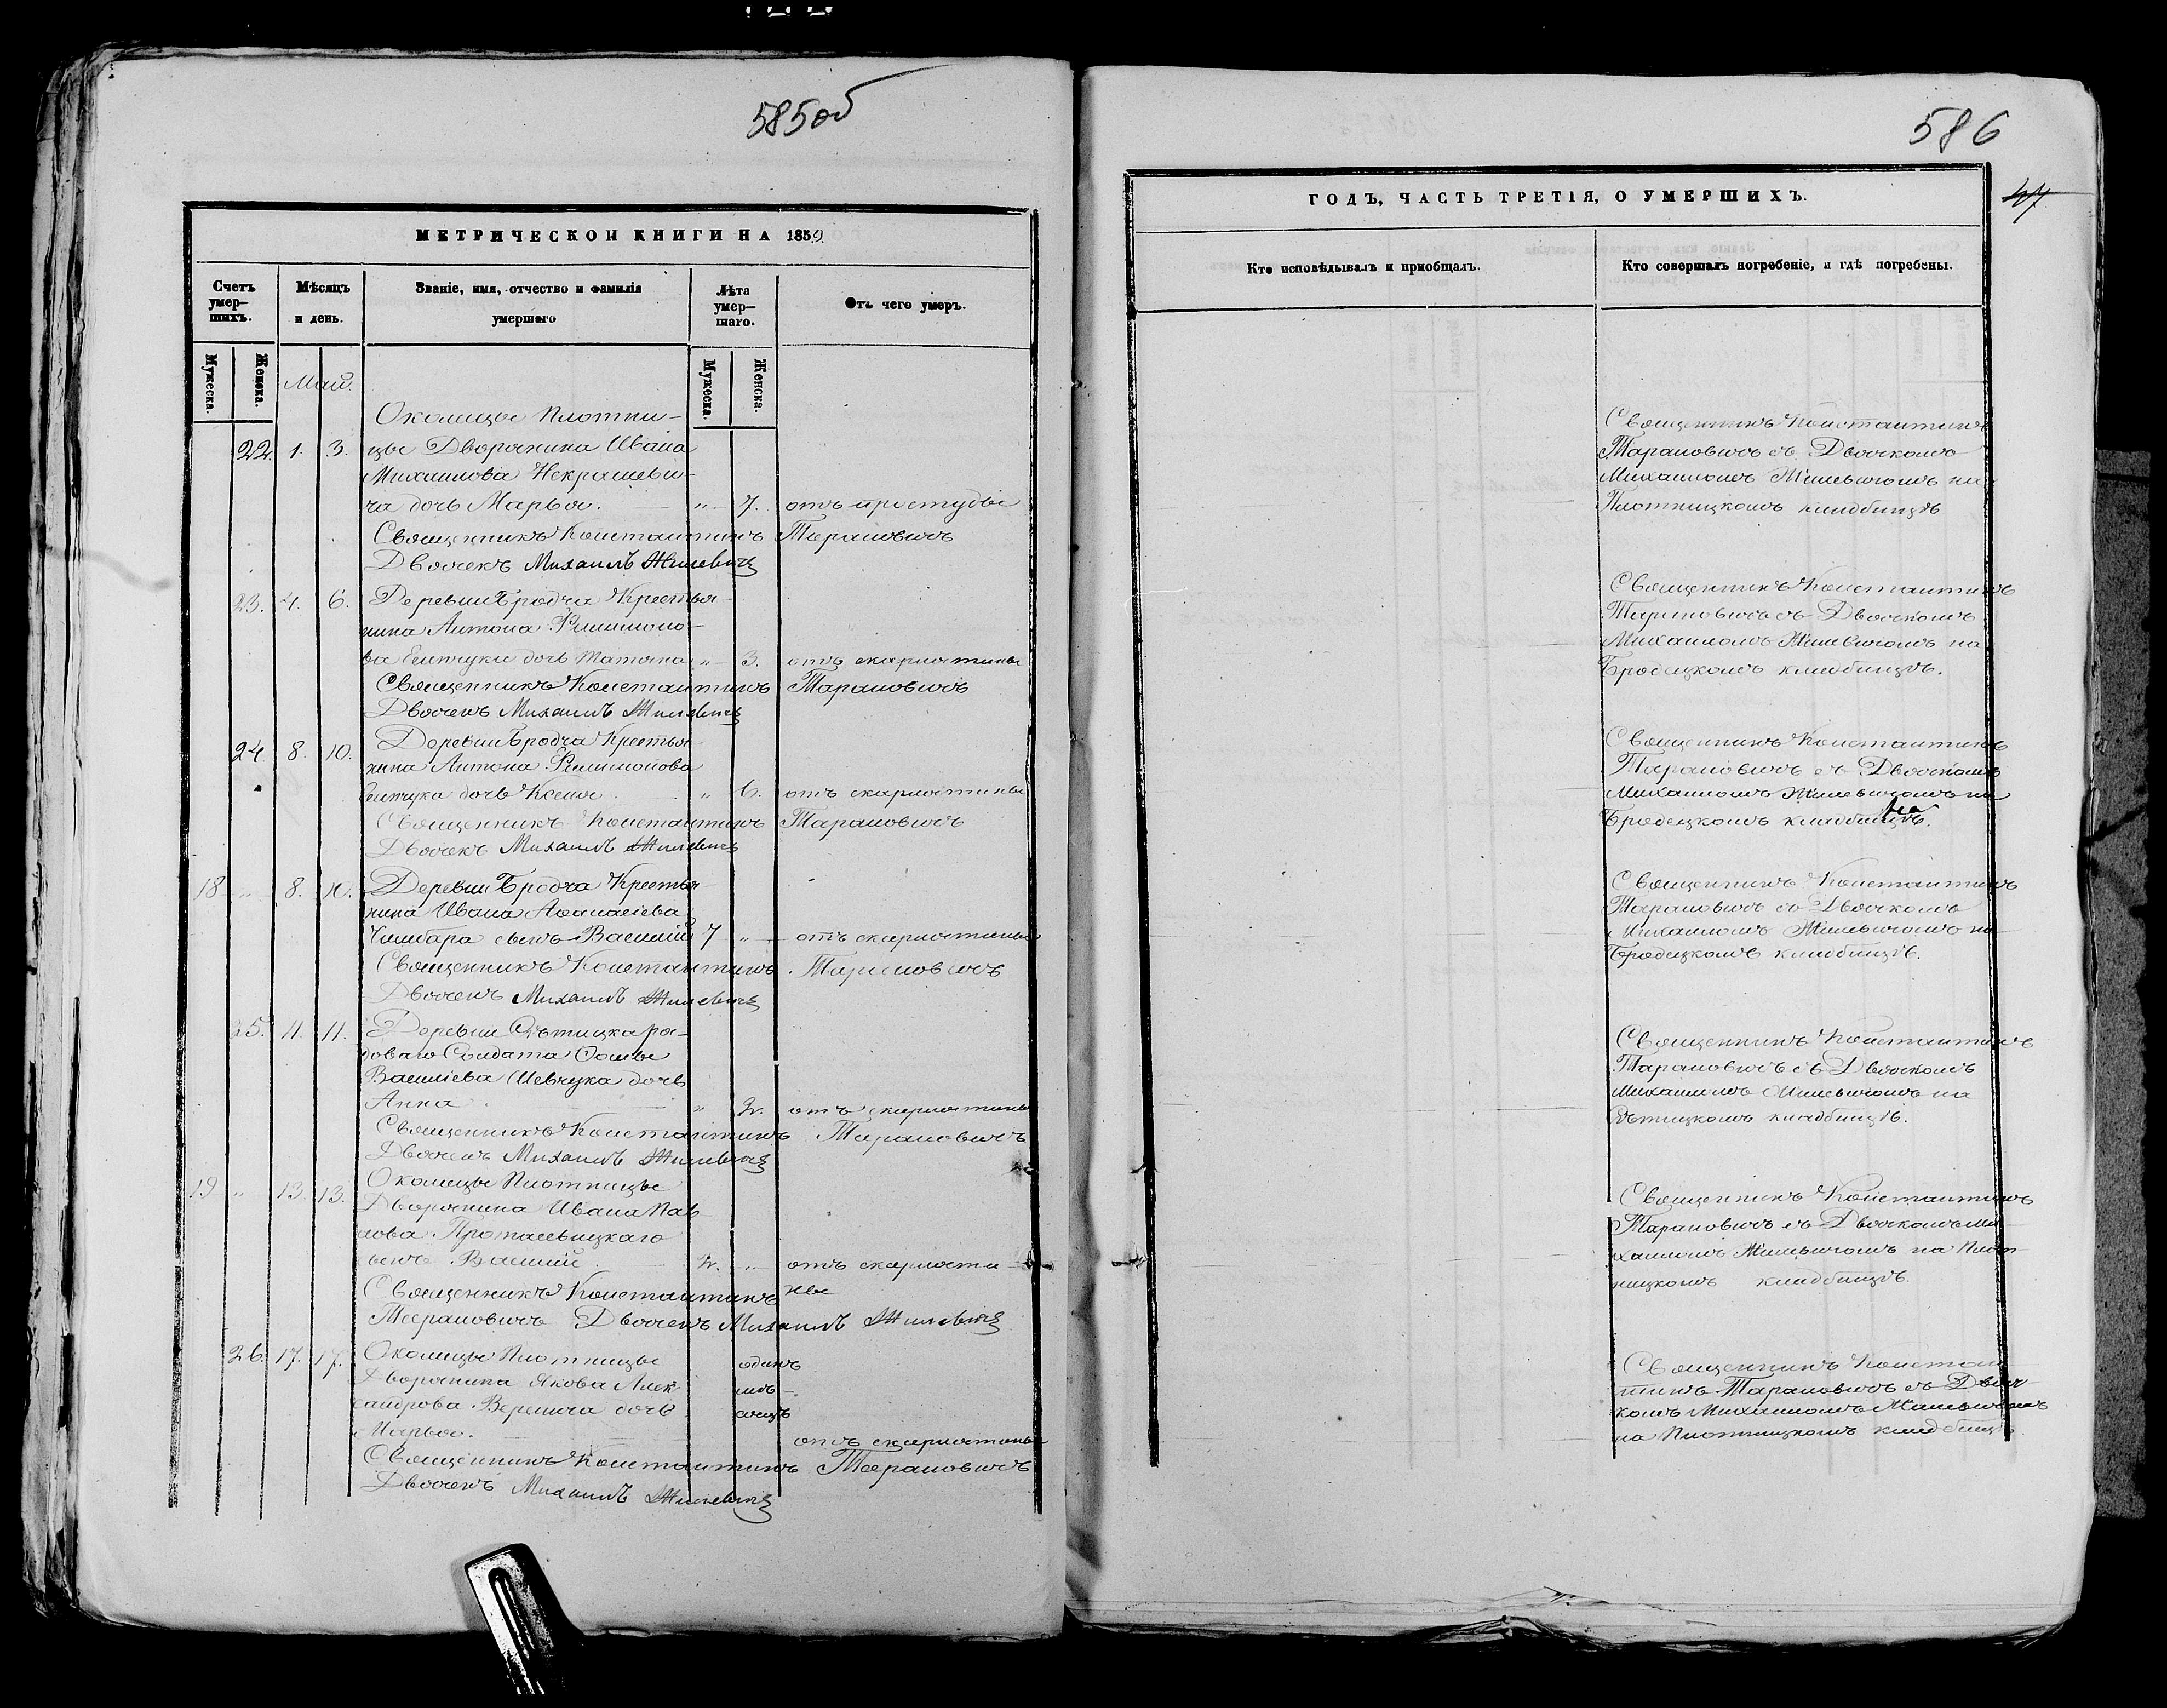 585об
МЕТРИЧЕСКОЙ КНИГИ НА 1859
Счетъ умер-
шихъ.
Мѣсяцъ
и день.
Званіе, имя, отчество и фамилія
умершаго
Лѣта
умер-
шаго.
Отъ чего умеръ.
Мужеска.
Женска.
Мужеска.
Женска.
Май.
Околицы Плотни-
22. 1. 3. цы Дворянина Ивана
Михаилова Некрашеви-
ча дочь Марья. " 7. отъ простуды
Священникъ Константинъ Тарановичъ
Дьячекъ Михаилъ Жилевичъ
23. 4. 6. Деревни Бродча Крестья-
нина Антона Филимоно-
ва дочь Татяна " 3. отъ скарлатины
Священникъ Константинъ Тарановичъ
Дьячекъ Михаилъ Жилевичъ
24. 8. 10. Деревни Бродча Крестья-
нина Антона Филимонова
дочь Ксенія " 6. отъ скарлатины
Священникъ Константинъ Тарановичъ
Дьячекъ Михаилъ Жилевичъ
18 " 8. 10. Деревни Бродча Крестья-
нина Ивана Аѳанасіева
сынъ Василій 7 " отъ скарлатины
Священникъ Константинъ Тарановичъ
Дьячекъ Михаилъ Жилевичъ
25. 11. 11. Деревни ря-
доваго Солдата Ѳомы
Василіева Шевчука дочь
Анна " 2. отъ скарлатины
Священникъ Константинъ Тарановичъ
Дьячекъ Михаилъ Жилевичъ
19 " 13. 13. Околицы Плотницы
Дворянина Ивана Пав-
лова Протасевицкаго
сынъ Василій 2. " отъ скарлати-
ны
Священникъ Константинъ
Тарановичъ Дьячекъ Михаилъ Жилевичъ
26. 17. 17. Околицы Плотницы одинъ
Дворянина Якова Алек- мѣ-
сандрова Веренича дочь сяцъ
Марья. отъ скарлатины
Священникъ Константинъ Тарановичъ
Дьячекъ Михаилъ Жилевичъ
586
47.
ГОДЪ, ЧАСТЬ ТРЕТІЯ, О УМЕРШИХЪ.
Кто исповѣдывалъ и пріобщалъ.
Кто совершалъ погребеніе, и гдѣ погребены.
Священникъ Константинъ
Тарановичъ съ Дьячкомъ
Михаиломъ Жилевичомъ на
Плотницкомъ кладбищѣ
Священникъ Константинъ
Тарановичъ съ Дьячкомъ
Михаиломъ Жилевичомъ на
Бродецкомъ кладбищѣ.
Священникъ Константинъ
Тарановичъ съ Дьячкомъ
Михаиломъ Жилевичомъ на
Бродецкомъ кладбищѣ.
Священникъ Константинъ
Тарановичъ съ Дьячкомъ
Михаиломъ Жилевичомъ на
Бродецкомъ кладбищѣ.
Священникъ Константинъ
Тарановичъ съ Дьячкомъ
Михаиломъ Жилевичомъ на
кладбищѣ.
Священникъ Константинъ
Тарановичъ съ Дьячкомъ Ми-
хаиломъ Жилевичомъ на Плот-
ницкомъ кладбищѣ.
Священникъ Констан-
тинъ Тарановичъ съ Дьяч-
комъ Михаиломъ Жилевичомъ
на Плотницкомъ кладбищѣ